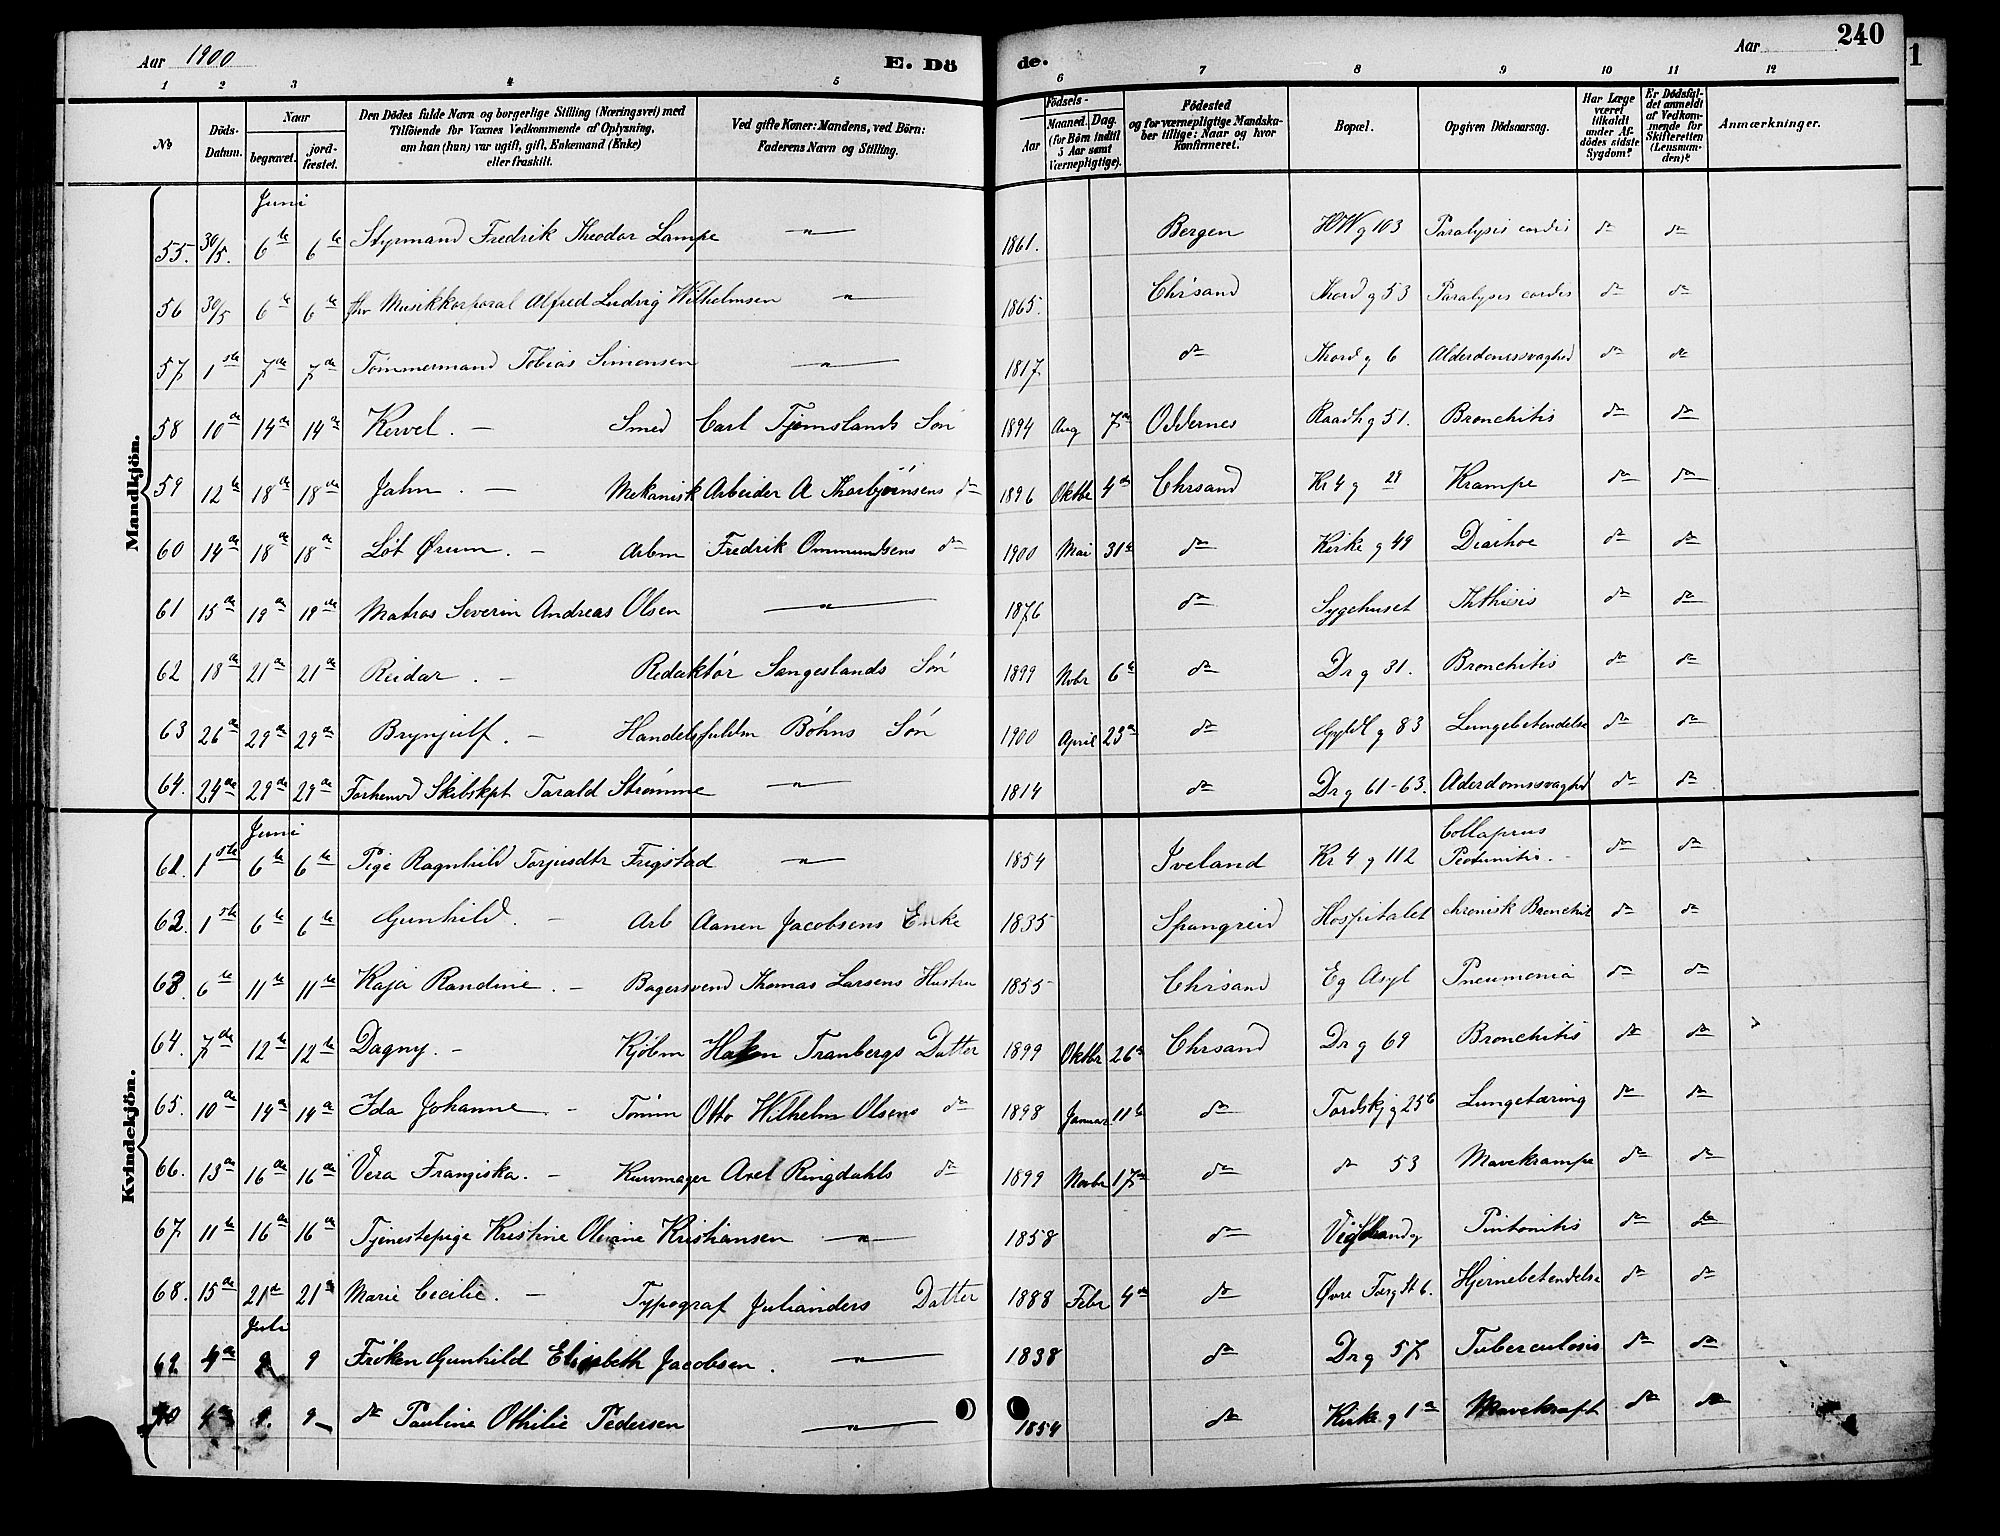 Aar 1900
E. Dö
de.
Aar
240
1
1 2 3 4 5 6 7 8 9 10 11 12
No
Döds-Datum.
Naar
begravet.
jord-fæstet.
Den Dödes fulde Navn og borgerlige Stilling (Næringsvei) med
Tilföiende for Voxnes Vedkommende af Oplysning,
om han (hun) var ugift, gift, Enkemand (Enke)
eller fraskilt.
Ved gifte Koner: Mandens, ved Börn:
Faderens Navn og Stilling.
Födsels-
Aar
Maaned. Dag.
(for Börn indtil
5 Aar samt
Værnepligtige).
Födested
og for værnepligtige Mandska-
ber tillige: Naar og hvor
Konfirmeret.
Bopæl.
Opgiven Dödsaarsag.
Har Læge
været
tilkaldt
under Af-
dödes sidste
Sygdom?
Er Dödsfal-
det anmeldt
af Vedkom-
mende for
Skifteretten
(Lensman-
den)?
Anmærkninger.
Mandkjön.
Juni
55. 30/5. 6te 6te Styrmand Fredrik Theodor Lampe " 1861. Bergen HWg 103 Paralysis cordis do do
56 30/5 6te 6te fhv Musikkorporal Alfred Ludvig Wilhelmsen " 1865. Chrsand Thord g 53 Paralysis cordis do do
57 1ste 7de 7de Tømmermand Tobias Simonsen " 1817 do Thord g 6 Alderdomssvaghed do do
58 10de 14de 14de Kervel. - Smed Carl Tjomslands Søn 1894 Aug 7de Oddernes Raadh g 51. Bronchitis do do
59 12te 18de 18de Jahn. - Mekanisk Arbeider A Thorbjörnsens do 1896 Oktbr 4de Chrsand Kr 4 g 29 Krampe do do
60 14de 18de 18de Løt Ørum. - Arbm Fredrik Ommundsens do 1900 Mai 31te do Kirke g 49 Diarhoe do do
61 15de 19de 19de Matros Severin Andreas Olsen " 1876 do Sygehuset Ththisis do do
62 18de 21de 21de Reidar. - Redaktør Sangeslands Søn 1899 Novbr 6te do Dr g 31. Bronchitis do do
63 26de 29de 29de Brynjulf. - Handelsfuldm Böhns Søn 1900 April 23de do Gyldl g 83 Lungebetendelse do do
64. 24de 29de 29de Forhenvd Skibskpt Tarald Strømme " 1814 do Dr g 61-63. Aderdomssvaghed do do
Kvindekjön.
Juni
61. 1ste 6te 6te Pige Ragnhild Torjusdtr Frigstad " 1854 Iveland Kr 4 g 112 Collaprus
Peotunitis. - do do
62. 1ste 6te 6te Gunhild. - Arb Aanen Jacobsens Enke 1835 Spangreid Hospitalet chronisk Bronchit do do
63. 6te 11te 11te Kaja Randine. - Bagersvend Thomas Larsens Hustru 1855 Chrsand Eg Asyl Pneumonia do do
64. 7de 12te 12te Dagny. - Kjøbm Haken Tranbergs Datter 1899 Oktbr 26de Chrsand Dr g 69 Bronchitis do do
65. 10de 14de 14de Ida Johanne - Tømm Otto Wilhelm Olsens do 1898 Januar 11te do Tordskj g 25b Lungetæring do do
66. 13de 16de 16de Vera Franziska. - Kurvmager Axel Ringdahls do 1899 Novbr 17de do do 53 Mavekrampe do do
67. 11te 16de 16de Tjenestepige Kristine Olevine Kristiansen " 1858 do Pintonitis do do
68. 15de 21de 21de Marie Cecilie. - Typograf Julianders Datter 1888 Febr 4de do Øvre Torg St 6. Hjernebetendelse do do
Juli
69 4de 9 9 Frøken Gunhild Elisabeth Jacobsen. " 1838 do Dr g 57 Tuberculosis do do
70 4de 9. 9 do Pauline Othilie Pedersen " 1854 do Kirke g 1a Mavekræft do do